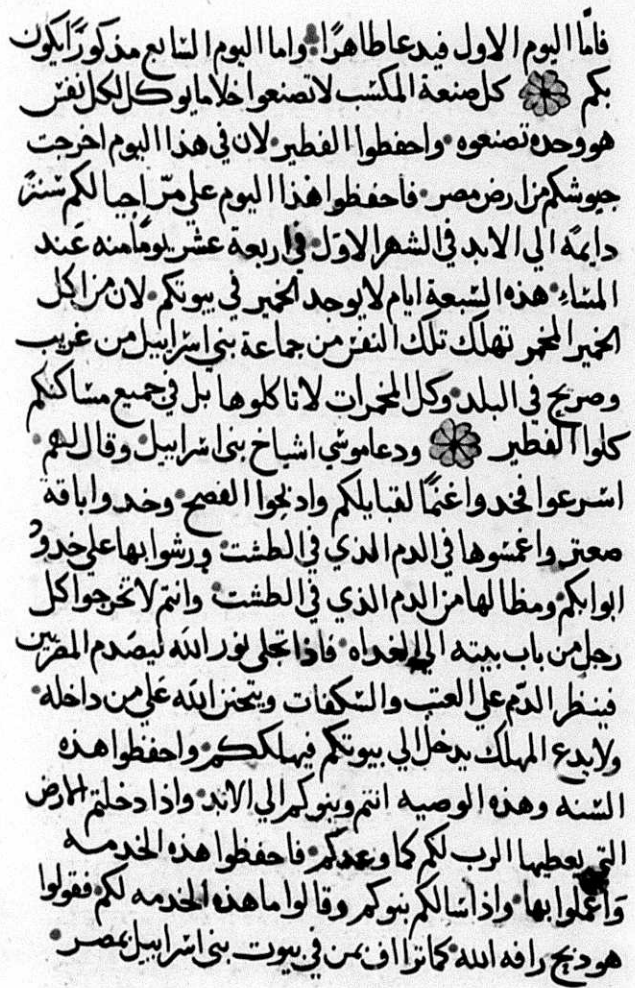 فامّا اليوم الاول فيدعا طاهرًا واما اليوم السابع مذكورًا يكون
بكم كل صنعة المكسب لا تصنعوا خلا ما يوكل لكل نفس
هو وحده تصنعوه واحفظوا الفطير لان في هذا اليوم اخرجت
جيوشكم من ارض مصر فاحفظوا هذا اليوم علي مرّ اجيالكم سنةً
دايمة الي الابد في الشهر الاول في اربعة عشر يومًا منه عند
المساء هذه السبعة ايام لا يوجد الخمير في بيوتكم لان من اكل
الخمير المخمر تهلك تلك النفس من جماعة بني اسراييل من غريب
وصريح في البلد وكل المخمرات لا تاكلوها بل في جميع مساكنكم
كلوا الفطير ودعا موسي اشياخ بني اسراييل وقال لهم
اسرعوا فخدوا غنمًا لقبايلكم وادبحوا الفصح وخدوا باقة
صعتر واغمسوها في الدم الذي في الطشت ورشوا بها علي خدود
ابوابكم ومظالها من الدم الذي في الطشت وانتم لا تخرجوا كل
رجل من باب بيته الي الغداه فاذا تجلي نور الله ليصدم المصريين
فينظر الدّم علي العتب والسكفات ويتحنن الله علي من داخله
ولا يدع المهلك يدخل الي بيوتكم فيهلككم واحفظوا هذه
السنه وهذه الوصيه انتم وبنوكم الي الابد واذا دخلتم الارض
التي يعطيها الرب لكم كما وعدكم فاحفظوا هذه الخدمه
واعملوا بها واذا سالكم بنوكم وقالوا ما هذه الخدمه لكم فقولوا
هو دبيح رافه الله كما تراف بمن في بيوت بني اسراييل بمصر